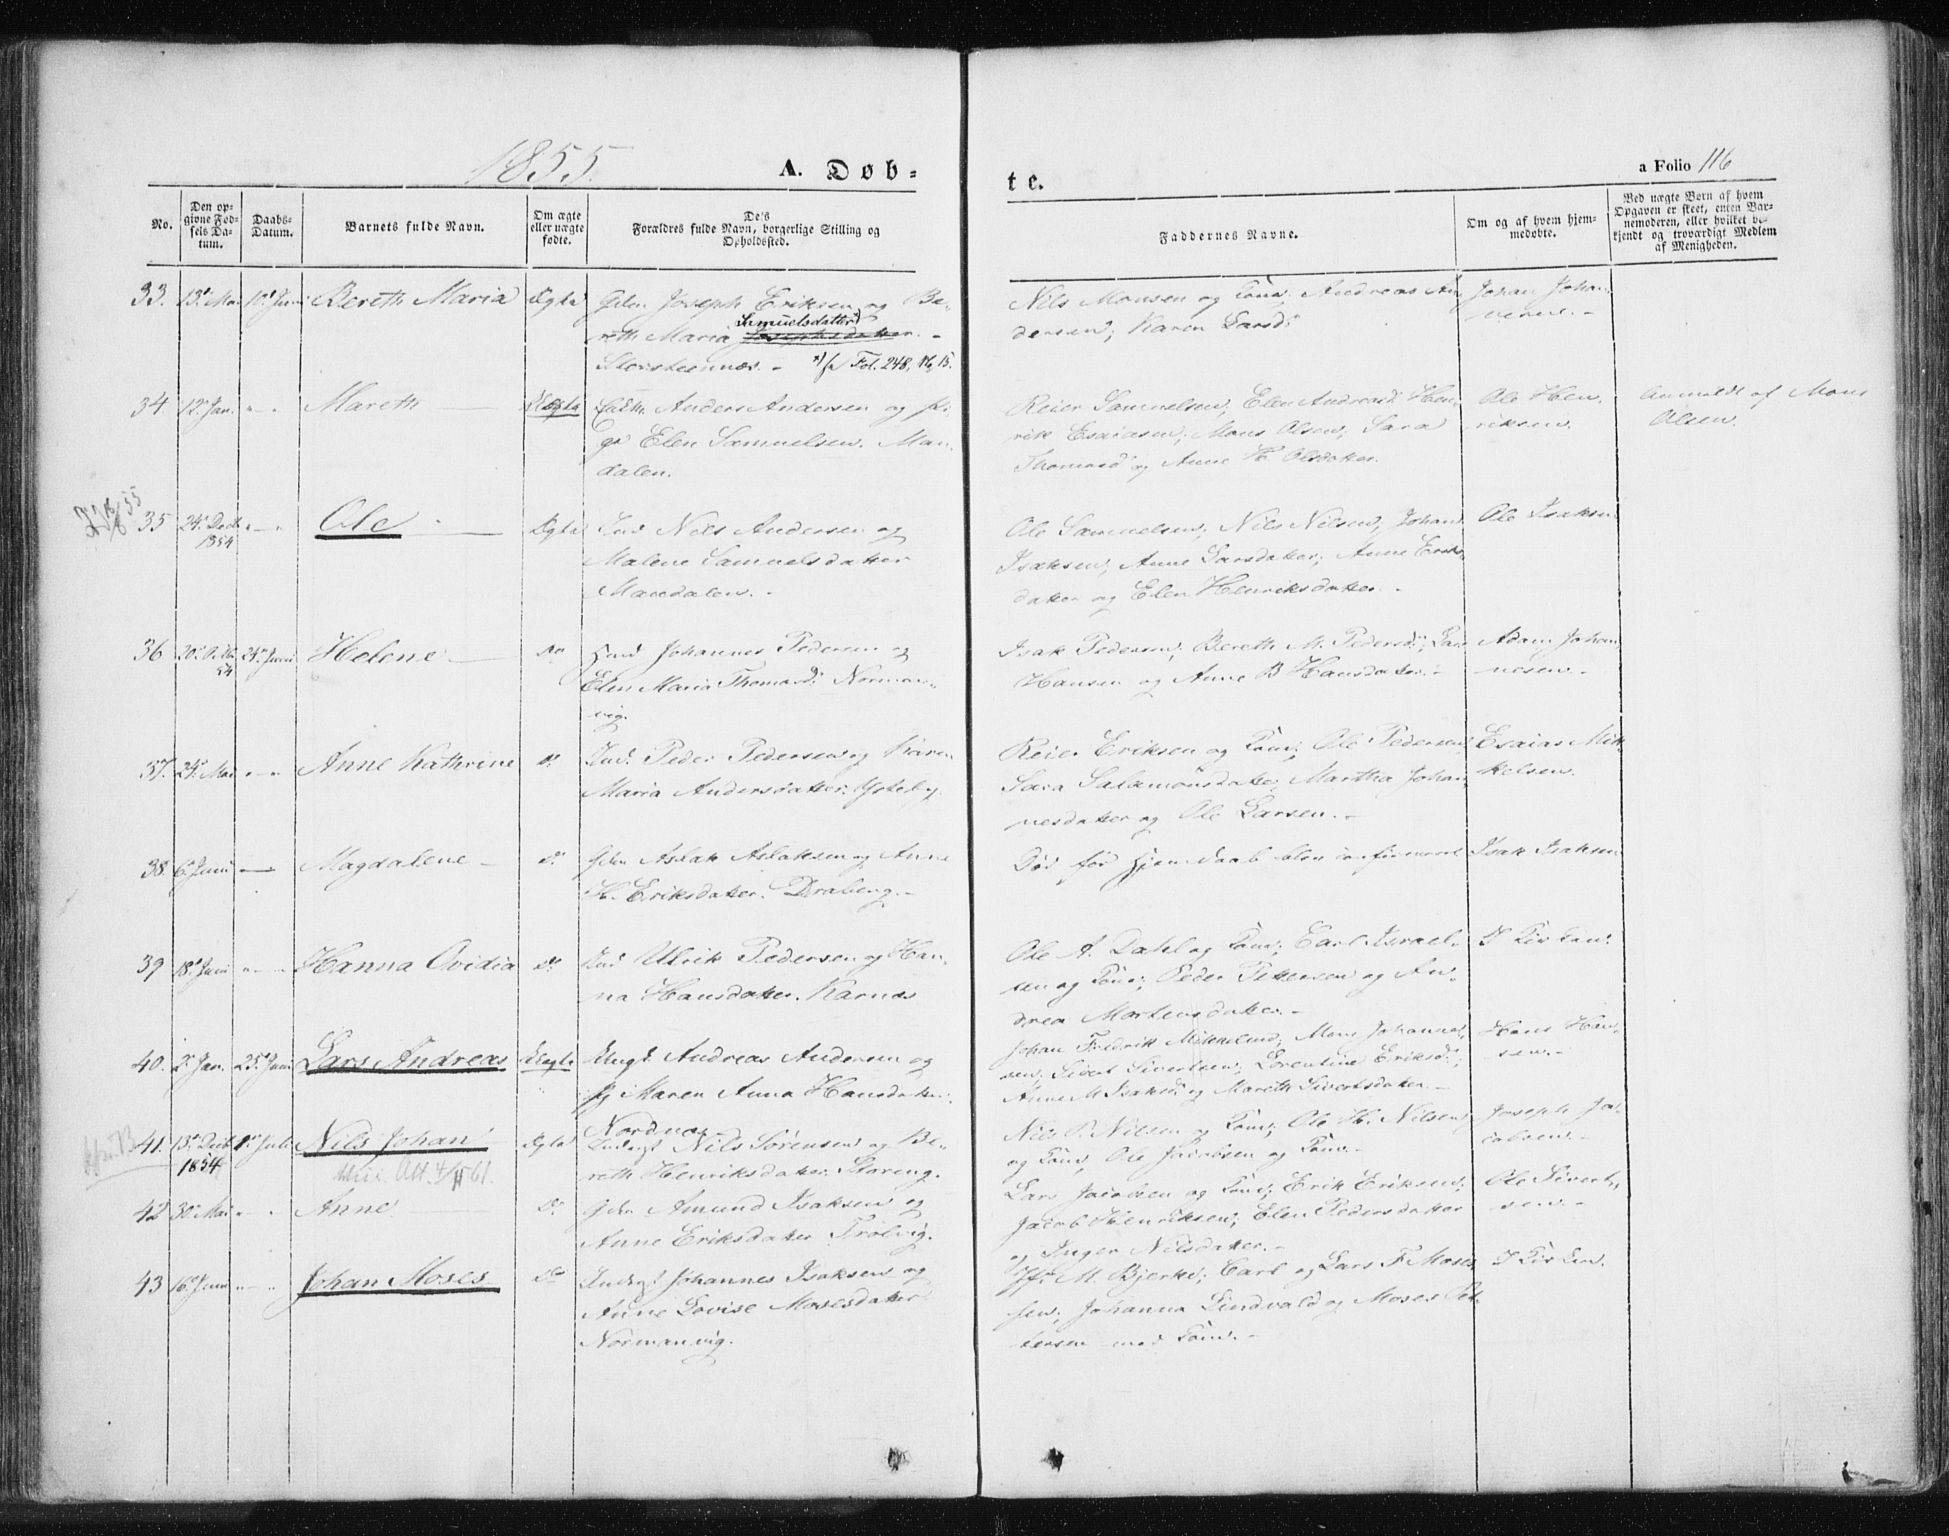 1855.
A. Døb-
te.
a Folio 116
No.
Den op-
givne Fød-
sels Da-
tum.
Daabs-
Datum.
Barnets fulde Navn.
Om ægte
eller uægte
fødte.
De's
Forældres fulde Navn, borgerlige Stilling og
Opholdssted.
Faddernes Navne.
Om og af hvem hjem-
medøbte.
Ved uægte Børn af hvem
Opgaven er skeet, enten Bar-
nemoderen, eller hvilket be-
kjendt og troværdigt Medlem
af Menigheden.
33. 13de Mai 10de Juni Bereth Maria Ægte Joseph Eriksen og Be-
Samuelsdatter
reth Maria Josephsdatter. -
Fol. 248, No 15.
Nils Monsen og Kone; Andreas An-
dersen; Karen Larsd:
Johan Johan-
34. 12te Jan. " " Mareth Uægte Anders Andersen og Pi-
ge Elen Samuelsen. Man-
dalen.
Reier Samuelsen, Elen Andreasd: Hen-
rik Esaiasen; Mons Olsen; Sara
Thomasd: og Anne H. Olsdatter.
Ole Hen-
riksen.
Anmeldt af Mons
Olsen.
35 24de Decbr 1854 " " Ole Ægte Ind Nils Andersen og
Malene Samuelsdatter
Mandalen. -
Ole Samuelsen; Nils Nilsen, Johan
Isaksen, Anne Larsdatter; Anne Eriks-
datter og Elen Henriksdatter. -
Ole Isaksen
36 24de Juni Helene Do Johannes Pedersen og
Elen Maria Thomasd: Norman-
vig.
Isak Pedersen; Bereth M. Pedersd:; Lars
Hansen og Anne B Hansdatter. -
Adam Johan-
nesen. -
37. 24de Mai " " Anne Kathrine Do Ind. Peder Pedersen og Karen
Maria Andersdatter. Ysteby.
Reier Eriksen og Kone; Ole Pedersen
Sara Salamonsdatter, Martha Johan-
nesdatter og Ole Larsen. -
Esaias Mik-
kelsen.
38. 6te Juni Magdalene Do Aslak Aslaksen og Anne
H. Eriksdatter. Draberg. -
Død før Hjemmedaab blev confirmeret
Isak Isaksen
39 18de Juni " " Hanna Ovidia Do Ind Ulrik Pedersen og Han-
na Hansdatter. Karnes
Ole A. Dahl og Kone; Carl Israel-
sen og Kone; Peder Pettersen og An-
drea Mortensdatter. -
I Kirken.
40. 2de Jan. 25de Juni Lars Andreas Uægte Ungk Andreas Andersen og
Pg Maren Anna Hansdatter.
Nordnes
Johan Fredrik Mikkelsen; Mons Johanne-
sen; Sivert Sivertsen; Lorentine Eriksd:;
Anne M Isaksd: og Mareth Sivertsdatter. -
Hans Han-
sen. -
41. 13de Decbr 1854 1ste Juli Nils Johan Ægte Indergt Nils Sørensen og Be-
reth Henriksdatter. Storeng.
Nils P. Nilsen og Kone; Ole H. Nilsen
og Kone, Ole Jacobsen og Kone. -
Joseph Ja-
cobsen. -
42 30te Mai " " Anne Do Amund Isaksen og
Anne Eriksdatter Trolvig.
Lars Jacobsen og Kone; Erik Eriksen;
Jacob Henriksen; Elen Pedersdatter
og Inger Nilsdatter. -
Ole Sivert-
sen. -
43 16de Juni " " Johan Moses Do Indergt Johannes Isaksen og
Anne Lovise Mosesdatter
Normanvig.
M. Bjerke; Carl og Lars F Moses-
sen; Johanna Lindvald og Moses Pet-
tersen med Kone. -
I Kirken.